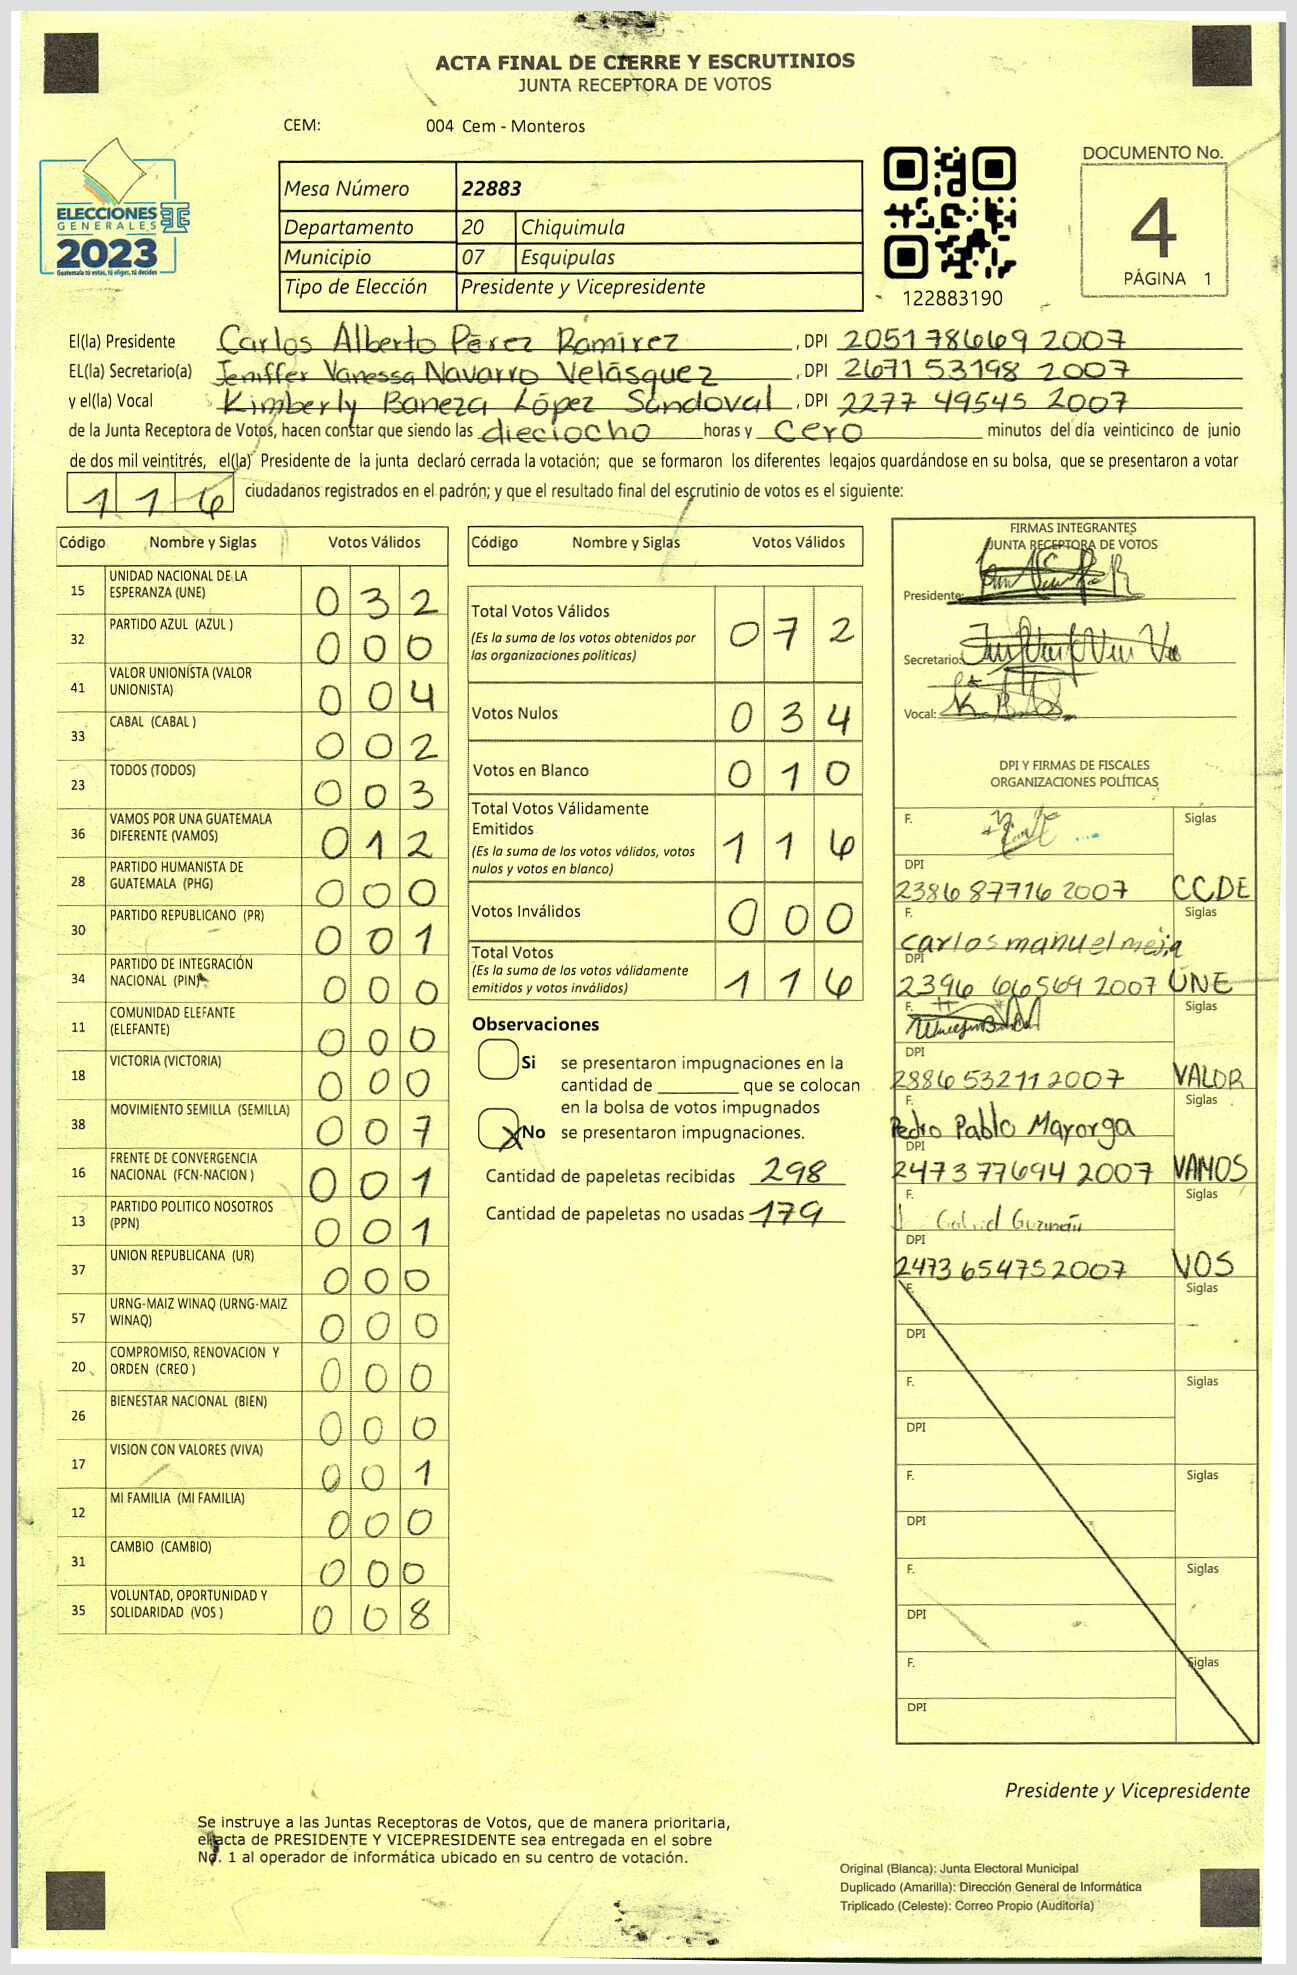 ACTA FINAL DE CIERRE Y ESCRUTINIOS
JUNTA RECEPTORA DE VOTOS
CEM: 004 Cem - Monteros
ELECCIONES
GENERALES
2023
Guatemala tú votas, tú eliges, tú decides
Mesa Número 22883
Departamento 20 Chiquimula
Municipio 07 Esquipulas
Tipo de Elección Presidente y Vicepresidente
122883190
DOCUMENTO No.
4
PÁGINA 1
El(la) Presidente Carlos Alberto Pérez Ramírez , DPI 2051 78669 2007
EL(la) Secretario(a) Jeniffer Vanessa Navarro Velásquez , DPI 2671 53198 2007
y el(la) Vocal Kimberly Baneza López Sandoval , DPI 2277 49545 2007
de la Junta Receptora de Votos, hacen constar que siendo las dieciocho horas y cero minutos del día veinticinco de junio
de dos mil veintitrés, el(la) Presidente de la junta declaró cerrada la votación; que se formaron los diferentes legajos guardándose en su bolsa, que se presentaron a votar
116 ciudadanos registrados en el padrón; y que el resultado final del escrutinio de votos es el siguiente:
Código Nombre y Siglas Votos Válidos
15 UNIDAD NACIONAL DE LA ESPERANZA (UNE) 032
32 PARTIDO AZUL (AZUL ) 000
41 VALOR UNIONISTA (VALOR UNIONISTA) 004
33 CABAL (CABAL ) 002
23 TODOS (TODOS) 003
36 VAMOS POR UNA GUATEMALA DIFERENTE (VAMOS) 012
28 PARTIDO HUMANISTA DE GUATEMALA (PHG) 000
30 PARTIDO REPUBLICANO (PR) 001
34 PARTIDO DE INTEGRACIÓN NACIONAL (PIN) 000
11 COMUNIDAD ELEFANTE (ELEFANTE) 000
18 VICTORIA (VICTORIA) 000
38 MOVIMIENTO SEMILLA (SEMILLA) 007
16 FRENTE DE CONVERGENCIA NACIONAL (FCN-NACION ) 001
13 PARTIDO POLITICO NOSOTROS (PPN) 001
37 UNION REPUBLICANA (UR) 000
57 URNG-MAIZ WINAQ (URNG-MAIZ WINAQ) 000
20 COMPROMISO, RENOVACION Y ORDEN (CREO ) 000
26 BIENESTAR NACIONAL (BIEN) 000
17 VISION CON VALORES (VIVA) 001
12 MI FAMILIA (MI FAMILIA) 000
31 CAMBIO (CAMBIO) 000
35 VOLUNTAD, OPORTUNIDAD Y SOLIDARIDAD (VOS ) 008
Código Nombre y Siglas Votos Válidos
Total Votos Válidos 072
(Es la suma de los votos obtenidos por
las organizaciones políticas)
Votos Nulos 034
Votos en Blanco 010
Total Votos Válidamente
Emitidos 116
(Es la suma de los votos válidos, votos
nulos y votos en blanco)
Votos Inválidos 000
Total Votos 116
(Es la suma de los votos válidamente
emitidos y votos inválidos)
Observaciones
Si se presentaron impugnaciones en la
cantidad de ________ que se colocan
en la bolsa de votos impugnados
X No se presentaron impugnaciones.
Cantidad de papeletas recibidas 298
Cantidad de papeletas no usadas 179
FIRMAS INTEGRANTES
JUNTA RECEPTORA DE VOTOS
Presidente:
Secretario:
Vocal:
DPI Y FIRMAS DE FISCALES
ORGANIZACIONES POLÍTICAS
F. Siglas
DPI
2386 87716 2007 CCDE
F. Siglas
carlos manuel mejia
DPI
2396 66569 2007 UNE
F. Siglas
DPI
2886 53211 2007 VALOR
F. Siglas
Pedro Pablo Mayorga
DPI
2473 77694 2007 VAMOS
F. Siglas
Gabriel Guzmán
DPI
2473 65475 2007 VOS
F. Siglas
DPI
F. Siglas
DPI
F. Siglas
DPI
F. Siglas
DPI
F. Siglas
DPI
Presidente y Vicepresidente
Se instruye a las Juntas Receptoras de Votos, que de manera prioritaria,
el acta de PRESIDENTE Y VICEPRESIDENTE sea entregada en el sobre
No. 1 al operador de informática ubicado en su centro de votación.
Original (Blanca): Junta Electoral Municipal
Duplicado (Amarilla): Dirección General de Informática
Triplicado (Celeste): Correo Propio (Auditoría)